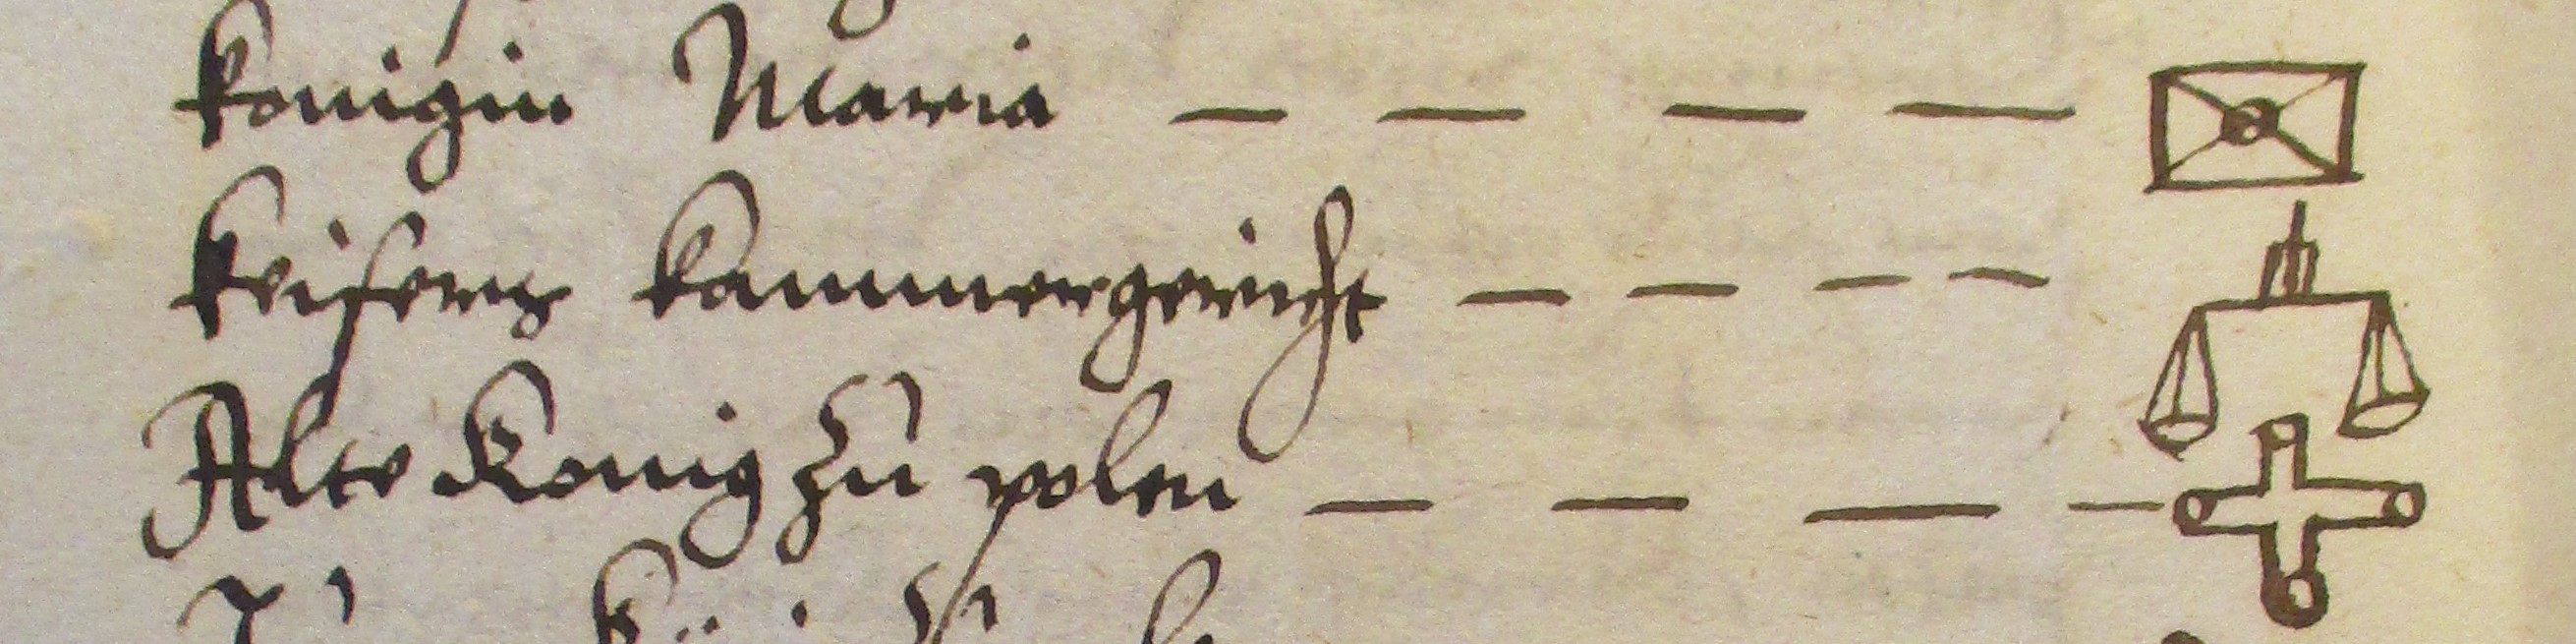 konigin Maria
keisers kammergericht
Alte Konig zu polen